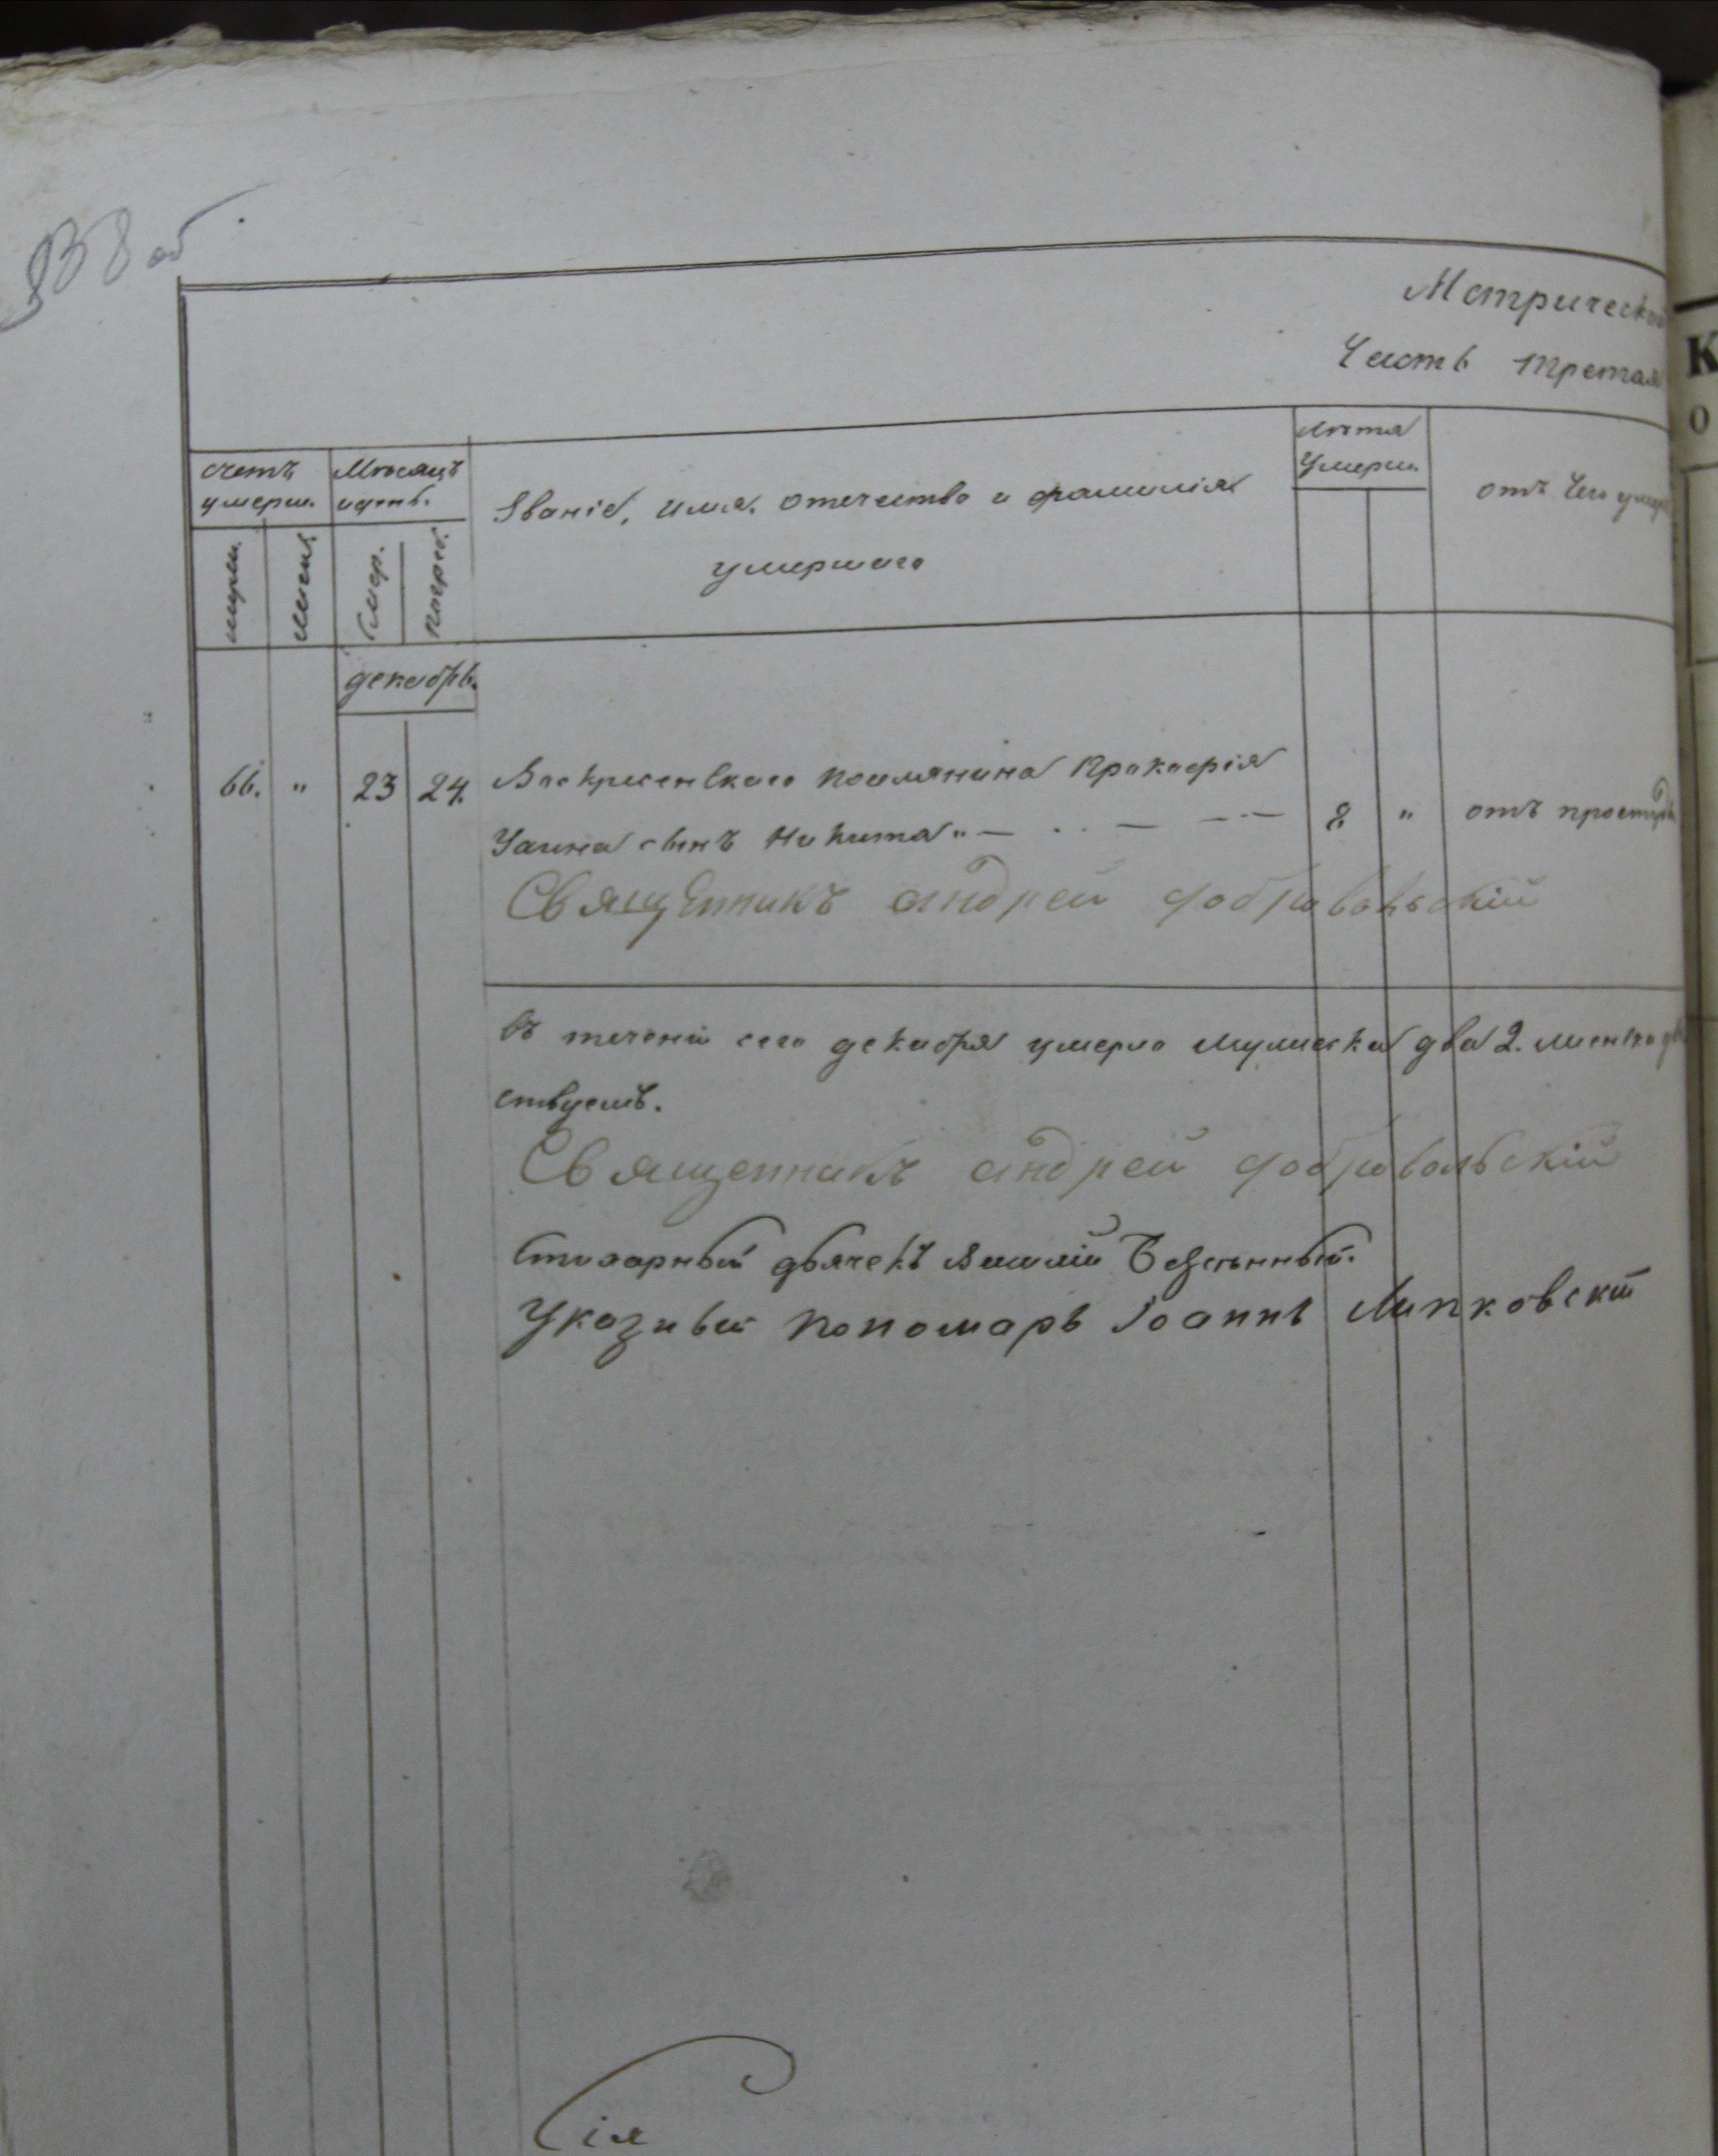 338 об
Метрической
Часть третая
К
о
счетъ
умерш.
Мѣсяцъ
и день.
Званіе, имя, отечество и фамилія
умершаго
лѣта
умерш.
отъ чего умеръ
мужеск.
женск.
Смер.
погреб.
декабрь.
66. " 23 24. Воскресенскаго поселянина Прокофія
сынъ Никита " — 8 " отъ простуды
Священникъ андрей добривольскій
въ течени сего декабря умерло мужеска два 2. женска
ствуетъ.
Священникъ андрей добривольскій
Стихарный дьячекъ Василій
Указный пономарь Іоаннъ Липковскій
Сія